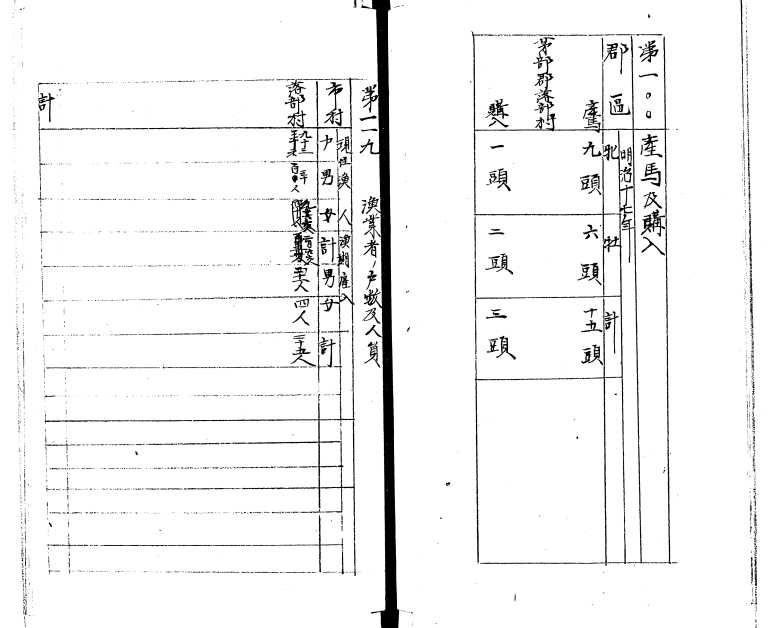 第一〇〇 産馬及購入
明治十七年
郡區 牝 牡 計
茅部郡落部村
産馬 九頭 六頭 十五頭
購入 一頭 二頭 三頭
第一一九 漁業者ノ戸数及人員
現住漁人 漁期雇入
市村 戸 男 女 計 男 女 計
落部村 四人
計